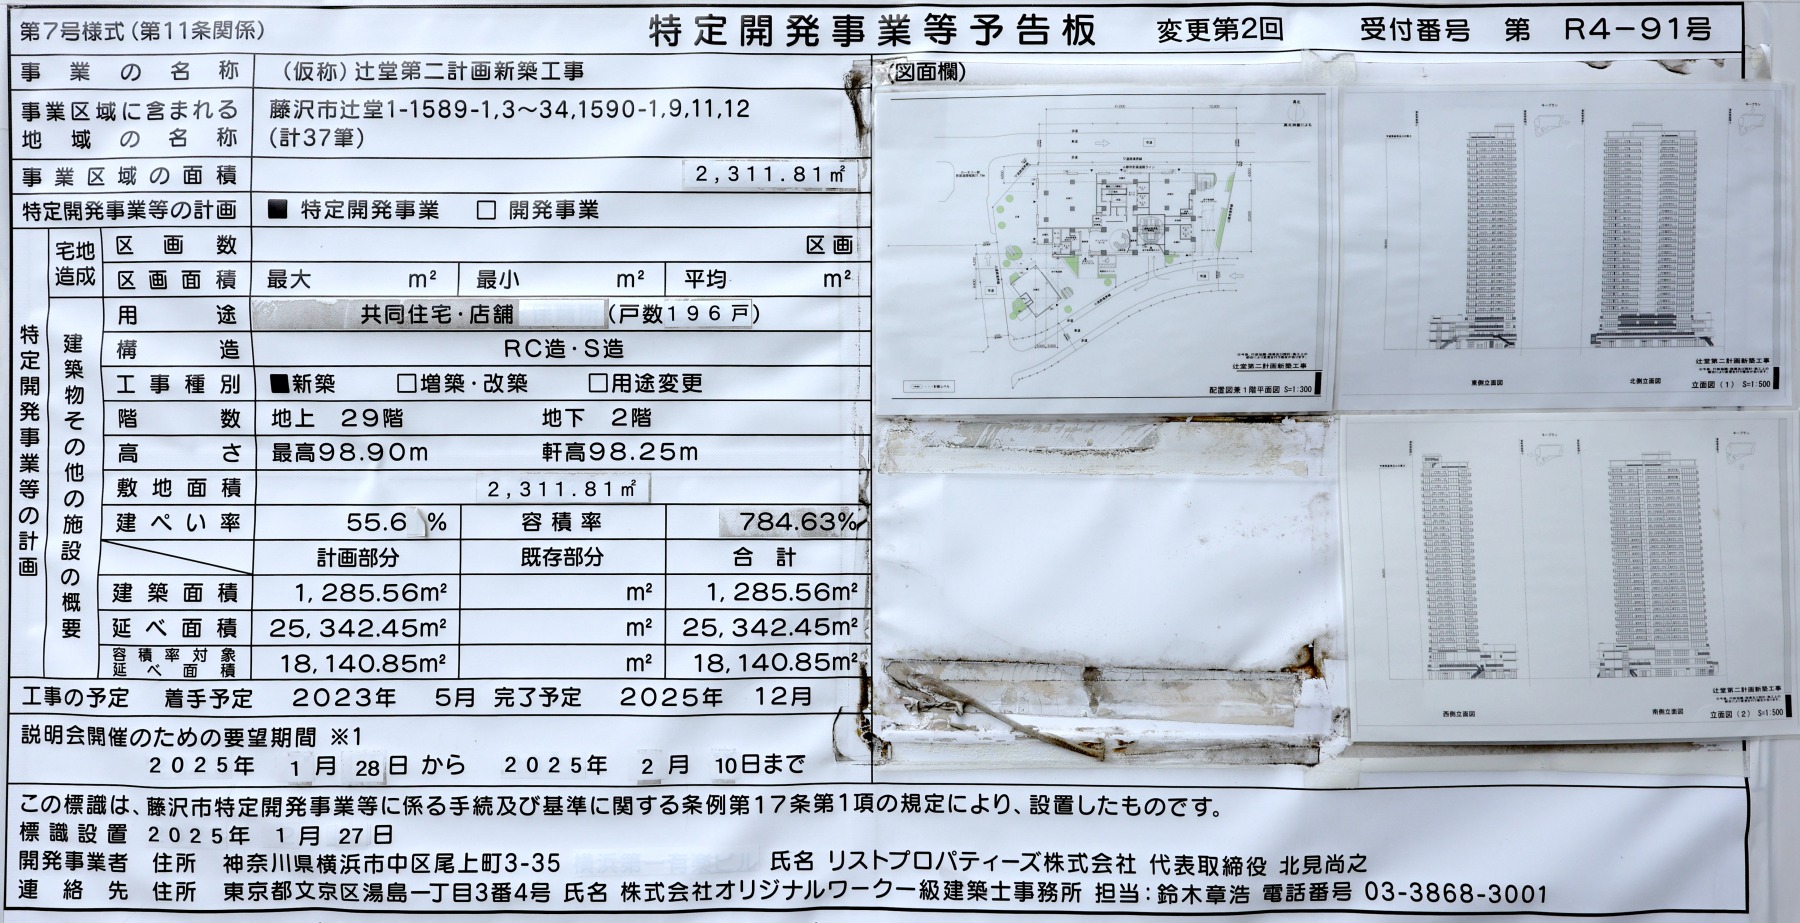 第7号様式(第11条関係)
特定開発事業等予告板 変更第2回 受付番号 第 R4-91号
事業の名称 (仮称)辻堂第二計画新築工事
事業区域に含まれる地域の名称 藤沢市辻堂1-1589-1,3〜34,1590-1,9,11,12
(計37筆)
事業区域の面積 2,311.81㎡
特定開発事業等の計画 ■ 特定開発事業 □ 開発事業
特定開発事業等の計画
宅地造成 区画数 区画
区画面積 最大 m² 最小 m² 平均 m²
建築物その他の施設の概要
用途 共同住宅・店舗 (戸数196戸)
構造 RC造・S造
工事種別 ■新築 □増築・改築 □用途変更
階数 地上 29階 地下 2階
高さ 最高98.90m 軒高98.25m
敷地面積 2,311.81㎡
建ぺい率 55.6 % 容積率 784.63%
計画部分 既存部分 合計
建築面積 1,285.56m² m² 1,285.56m²
延べ面積 25,342.45m² m² 25,342.45m²
容積率対象延べ面積 18,140.85m² m² 18,140.85m²
工事の予定 着手予定 2023年 5月 完了予定 2025年 12月
説明会開催のための要望期間 ※1
2025年 1月 28日 から 2025年 2月 10日まで
この標識は、藤沢市特定開発事業等に係る手続及び基準に関する条例第17条第1項の規定により、設置したものです。
標識設置 2025年 1月 27日
開発事業者 住所 神奈川県横浜市中区尾上町3-35 氏名 リストプロパティーズ株式会社 代表取締役 北見尚之
連絡先 住所 東京都文京区湯島一丁目3番4号 氏名 株式会社オリジナルワーク一級建築士事務所 担当:鈴木章浩 電話番号 03-3868-3001
(図面欄)
辻堂第二計画新築工事
配置図兼1階平面図 S=1:300
東側立面図
北側立面図
辻堂第二計画新築工事
立面図(1) S=1:500
西側立面図
南側立面図
辻堂第二計画新築工事
立面図(2) S=1:500